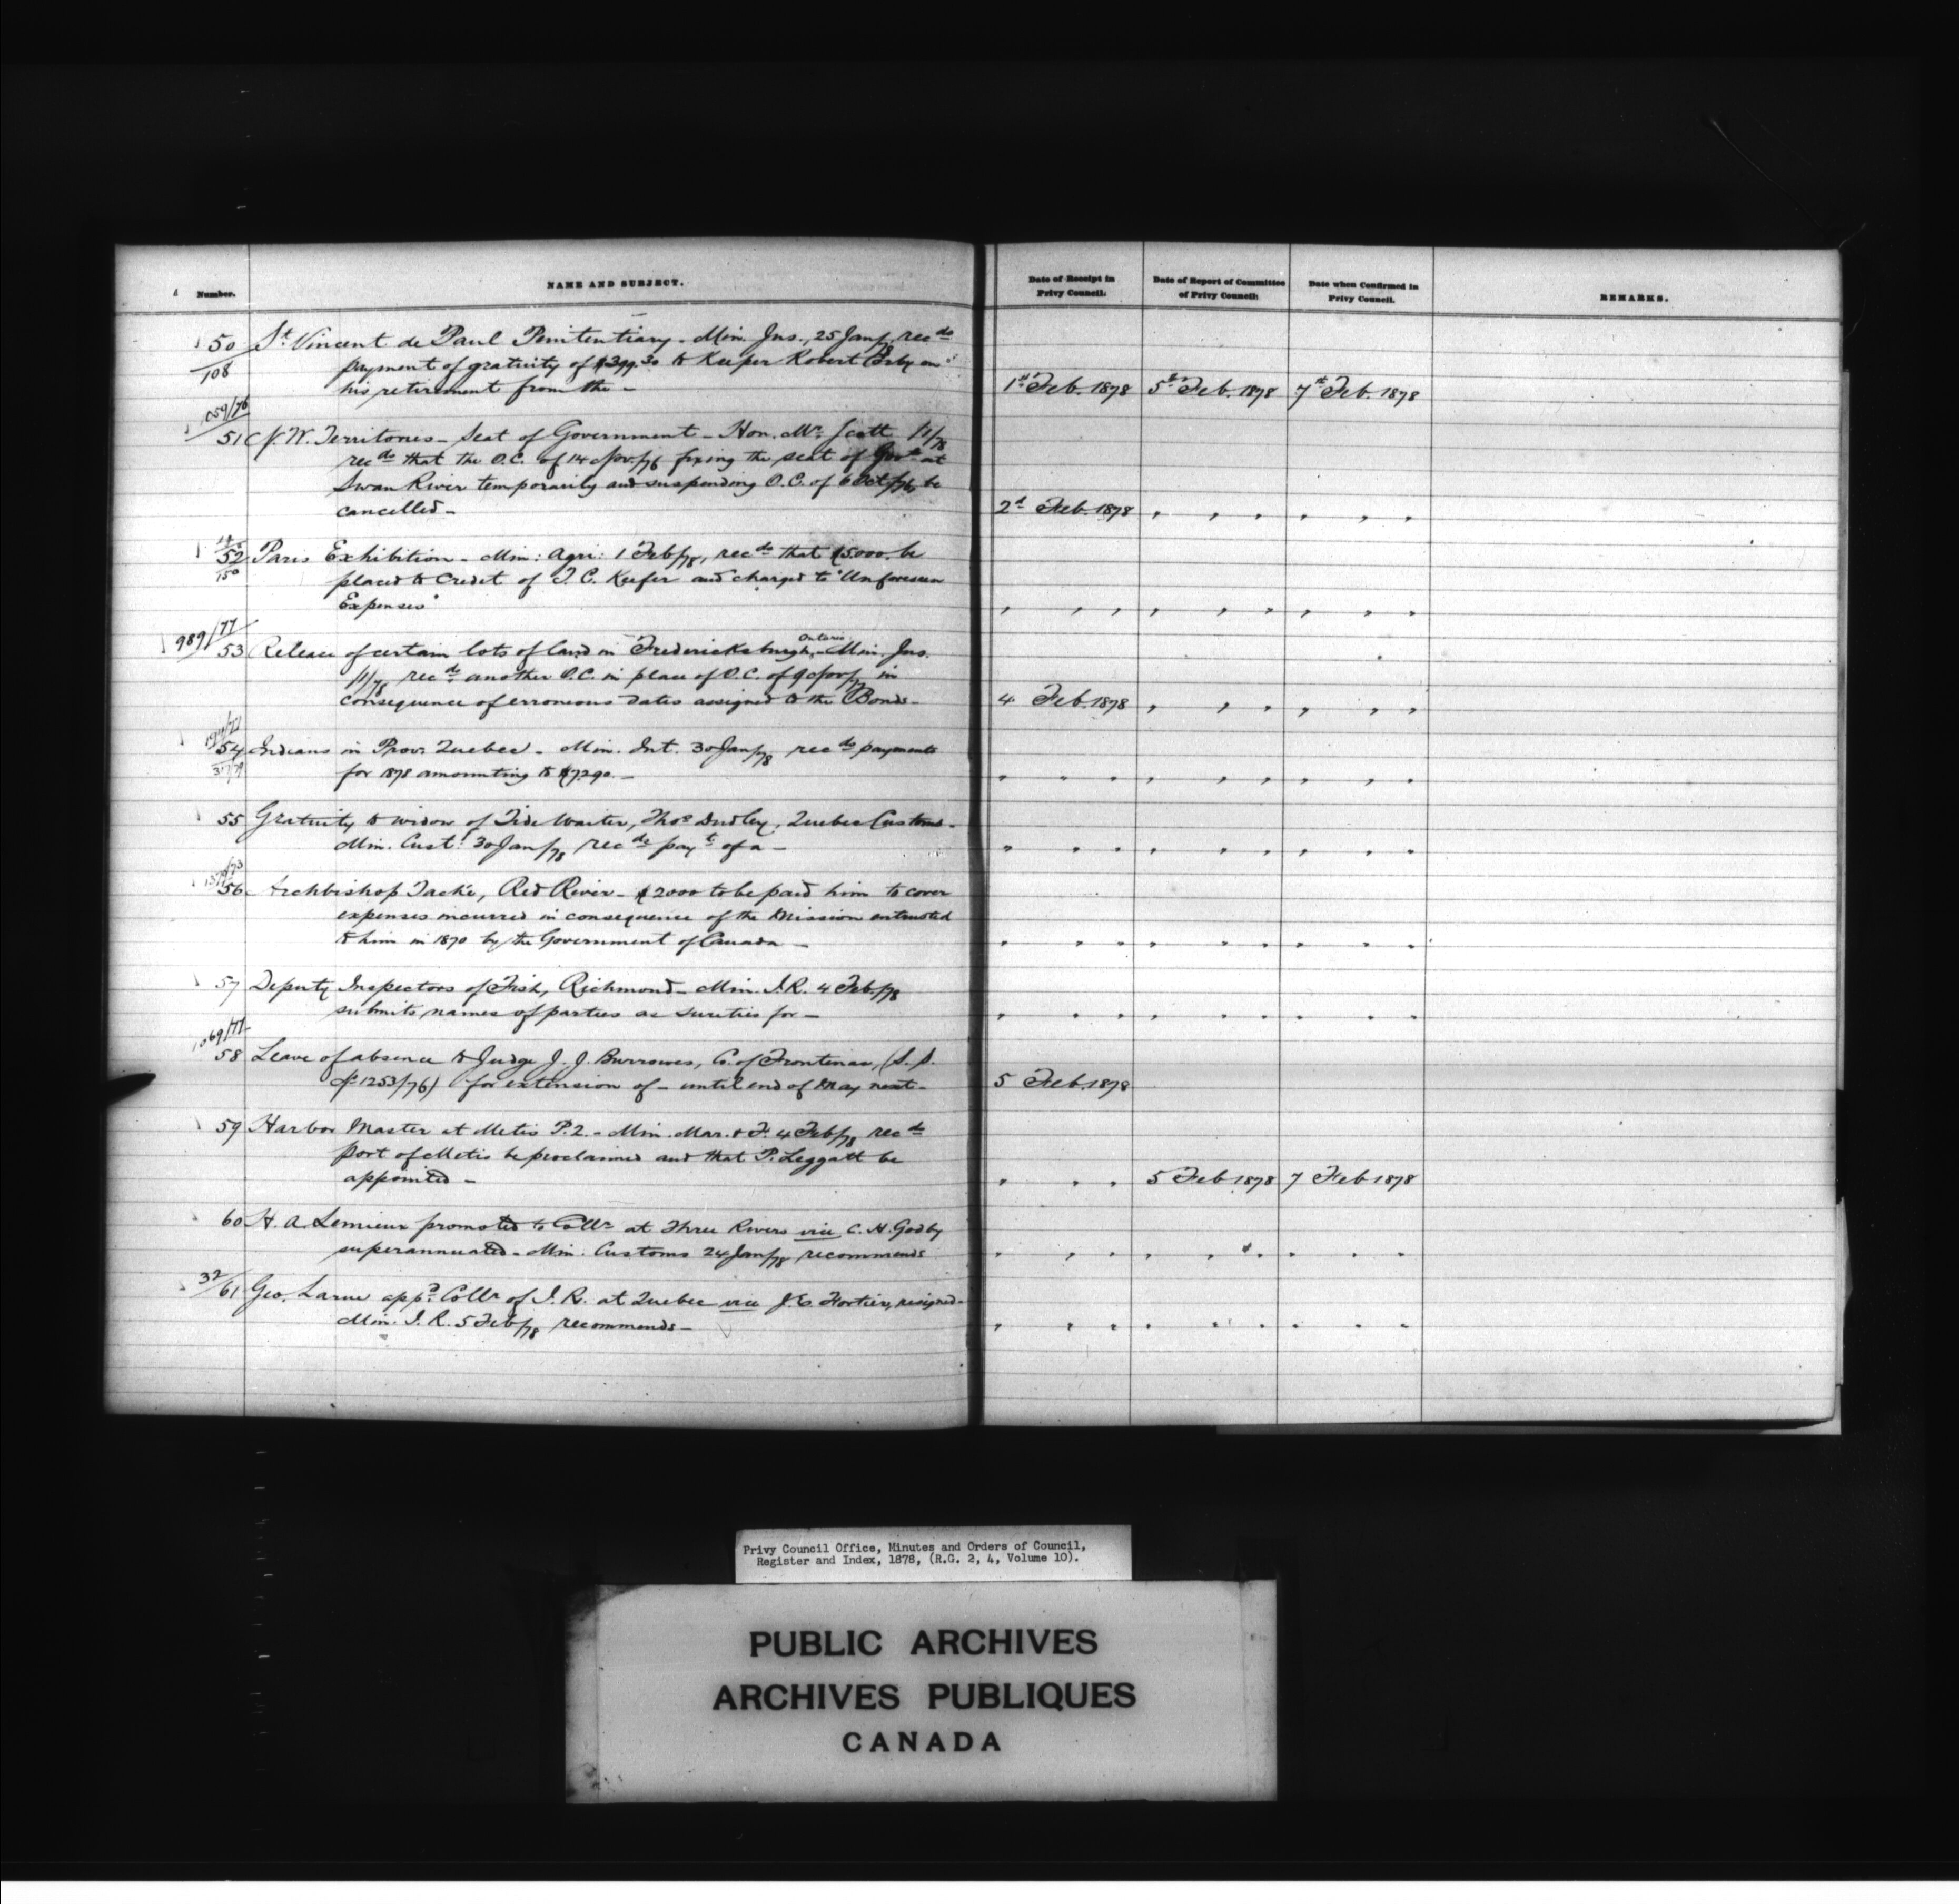 Number.
NAME AND SUBJECT.
Date of Receipt in Privy Council.
Date of Report of Committee of Privy Council.
Date when Confirmed in Privy Council.
REMARKS.
50 St. Vincent de Paul Penitentiary - Min. Jus., 25 Jany/78 recds
108 payment of gratuity of $399.30 to Keeper Robert on
his retirement from the - 1st Feb. 1878 5th Feb. 1878 7th Feb. 1878
1059/76
51 N.W. Territories - Seat of Government - Hon. Mr. Scott 1/1/78
recds that the O.C. of 14 Nov./76 fixing the seat of Govt. at
Swan River temporarily and suspending O.C. of 6 Oct/76, be
cancelled - 2d Feb. 1878 " " " " " "
52 Paris Exhibition - Min: Agri: 1 Feb/78, recds that $5000. be
150 placed to Credit of T. C. Keefer and charged to "Unforeseen
Expenses" " " " " " " " " "
989/77
53 Release of certain lots of land in Fredericksburgh, Ontario - Min. Jus.
1/1/78 recds another O.C. in place of O.C. of 9 Nov/77 in
consequence of erroneous dates assigned to the Bonds - 4 Feb. 1878 " " " " " "
54 Indians in Prov. Quebec - Min. Int. 30 Jany/78 recds payments
317/79 for 1878 amounting to $7290. - " " " " " " " " "
55 Gratuity to widow of Tide Waiter, Thos. Dudley, Quebec Customs -
Min. Cust: 30 Jan/78 recds payt of a - " " " " " " " " "
56 Archbishop Taché, Red River - $2000 to be paid him to cover
expenses incurred in consequence of the Mission entrusted
to him in 1870 by the Government of Canada - " " " " " " " " "
57 Deputy Inspectors of Fish, Richmond - Min. I.R. 4 Feb./78
submits names of parties as sureties for - " " " " " " " " "
1069/77
58 Leave of absence to Judge J. J. Burrowes, Co. of Frontenac, (S. S.
No 1253/76) for extension of - until end of May next - 5 Feb. 1878
59 Harbor Master at Metis P.Q. - Min. Mar. & F. 4 Feb/78 recds
Port of Metis be proclaimed and that P. Leggatt be
appointed - " " " 5 Feb 1878 7 Feb 1878
60 H. A. Lemieux promoted to Collr at Three Rivers vice C. H. Godby
superannuated - Min. Customs 24 Jan/78 recommends " " " " " " " " "
32/61 Geo. Larue appd. Collr of I. R. at Quebec vice J. E. Fortier, resigned -
Min. I. R. 5 Feb/78 recommends - " " " " " " " " "
Privy Council Office, Minutes and Orders of Council,
Register and Index, 1878, (R.G. 2, 4, Volume 10).
PUBLIC ARCHIVES
ARCHIVES PUBLIQUES
CANADA